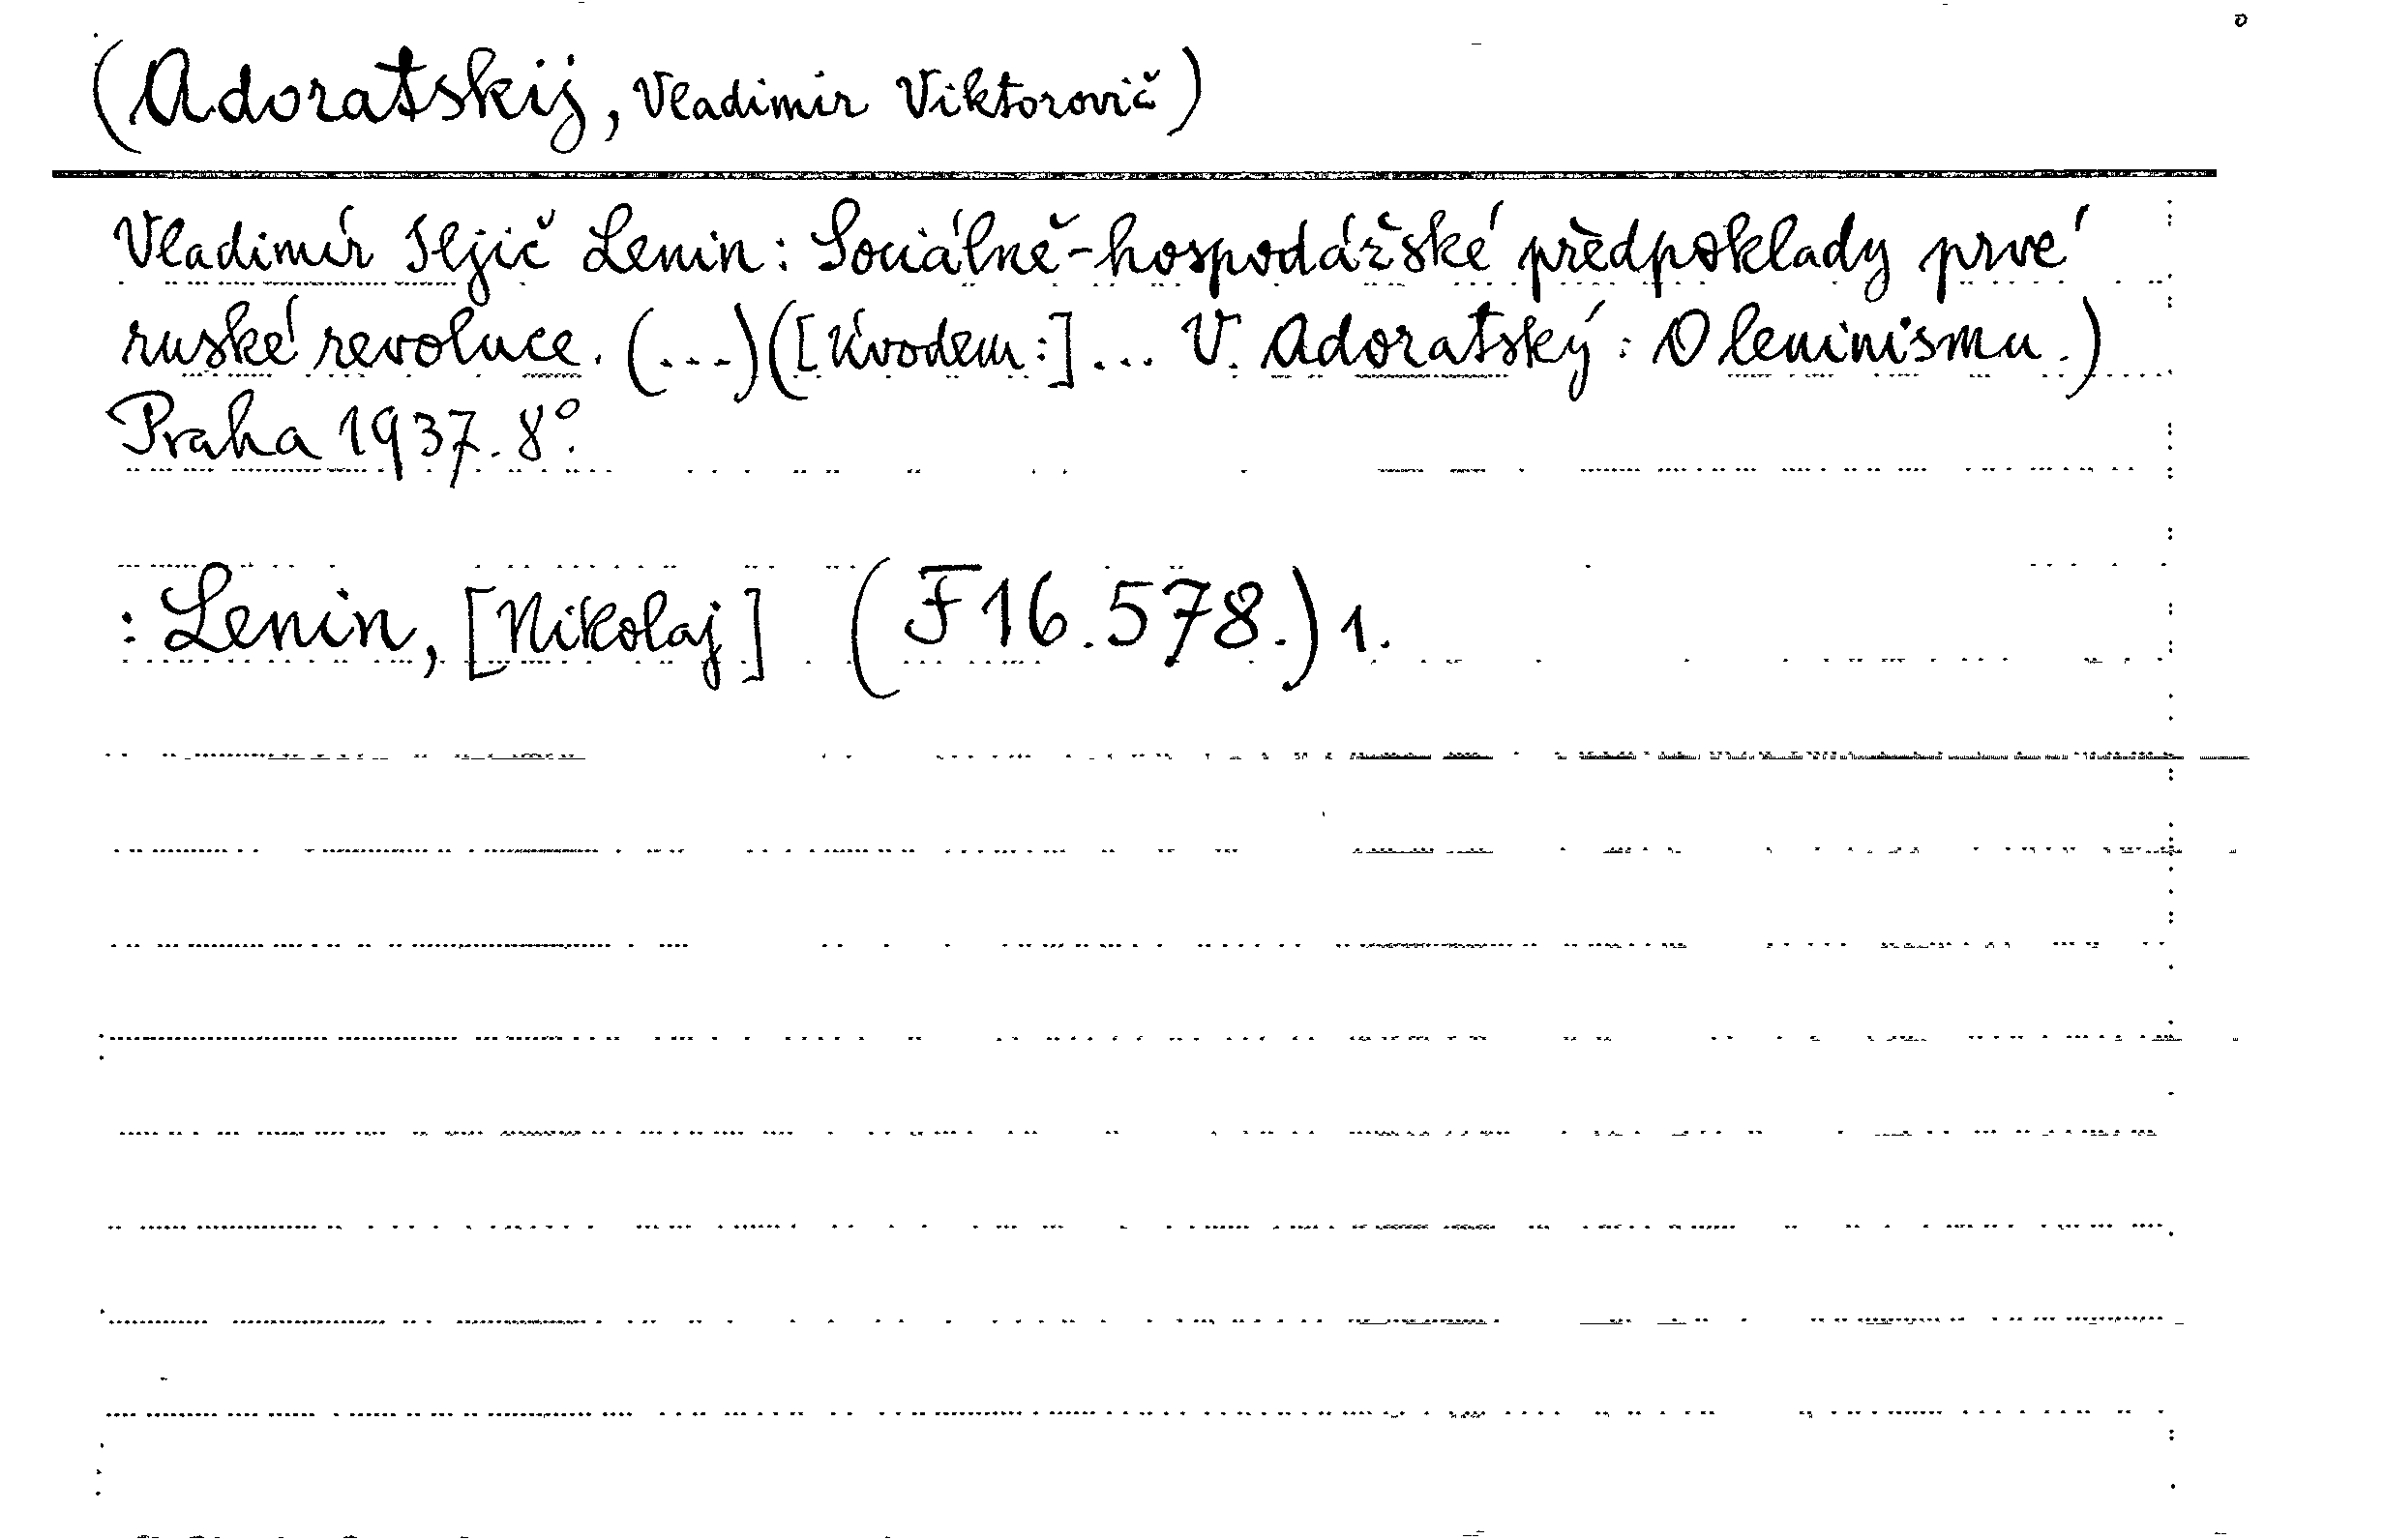 (Adoratskij, Vladimir Viktorovič)
Vladimír Iljič Lenin: Sociálně-hospodářské předpoklady prvé
ruské revoluce. (...)([Úvodem:]... V. Adoratský: O leninismu.)
Praha 1937. 8°.
: Lenin, [Nikolaj] (F 16.578.) 1.